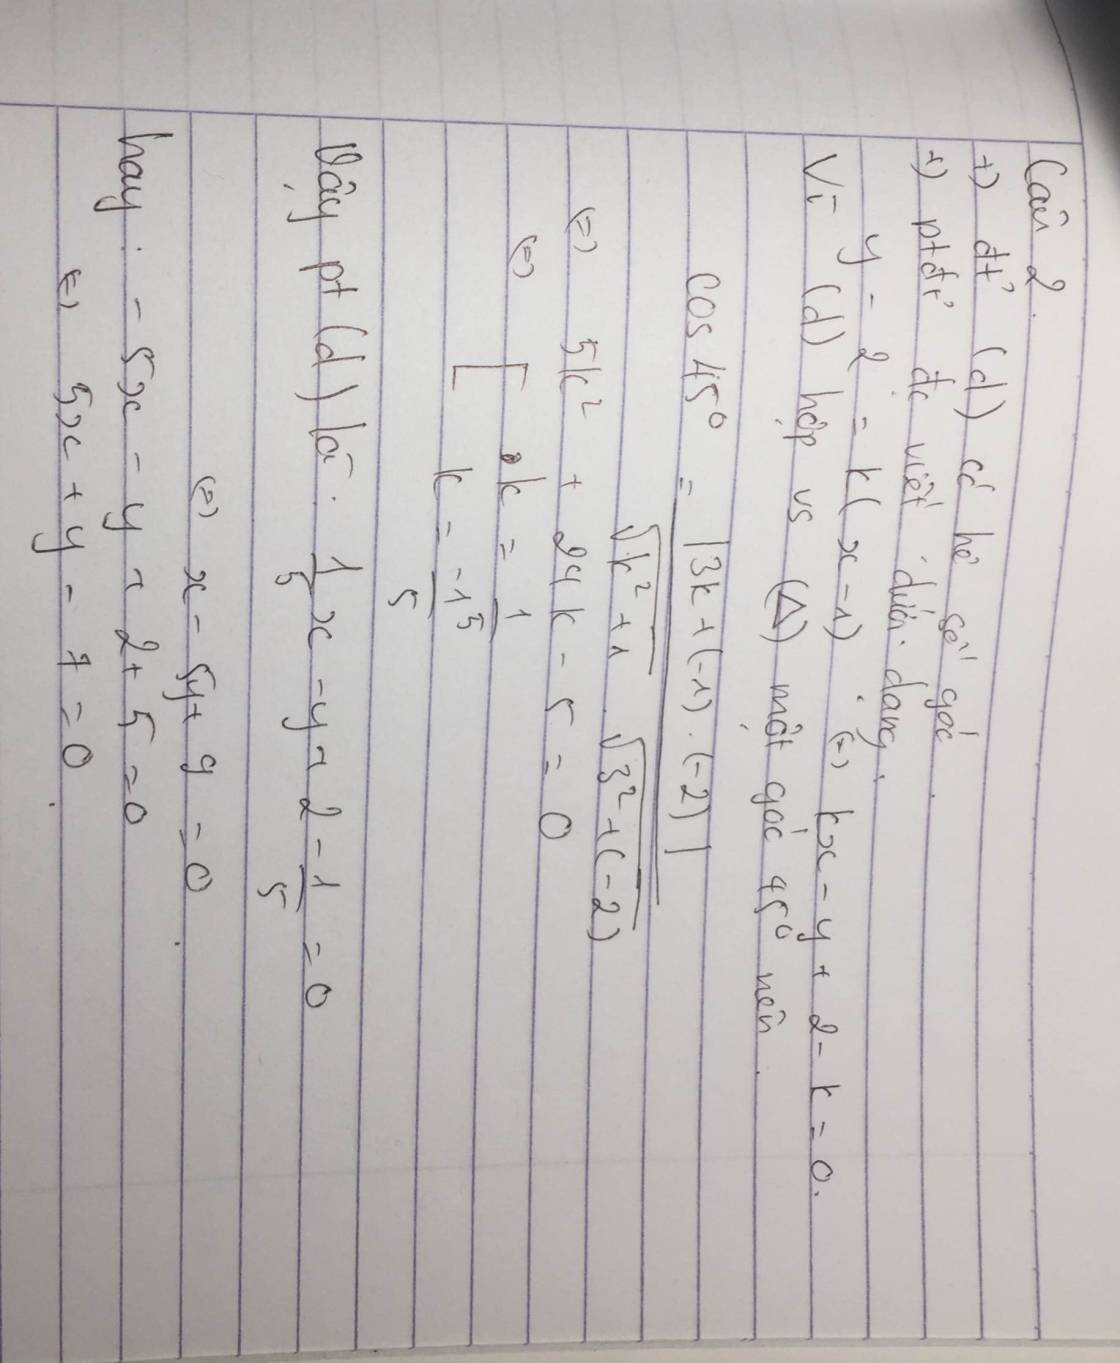 Câu 2.
+) đt' (d) có hệ số góc
+) ptđt' đc viết dưới dạng.
y - 2 = k(x - 1) (=) kx - y + 2 - k = 0.
Vì (d) hợp vs (Δ) một góc 45° nên.
cos 45° = |3k + (-1).(-2)| / √k² + 1 . √3² + (-2)
(=) 5k² + 24k - 5 = 0
(=) [ k = 1/5
k = -1/5
Vậy pt (d) là. 1/5 x - y + 2 - 1/5 = 0
(=) x - 5y + 9 = 0
hay : - 5x - y + 2 + 5 = 0
(=) 5x + y - 7 = 0